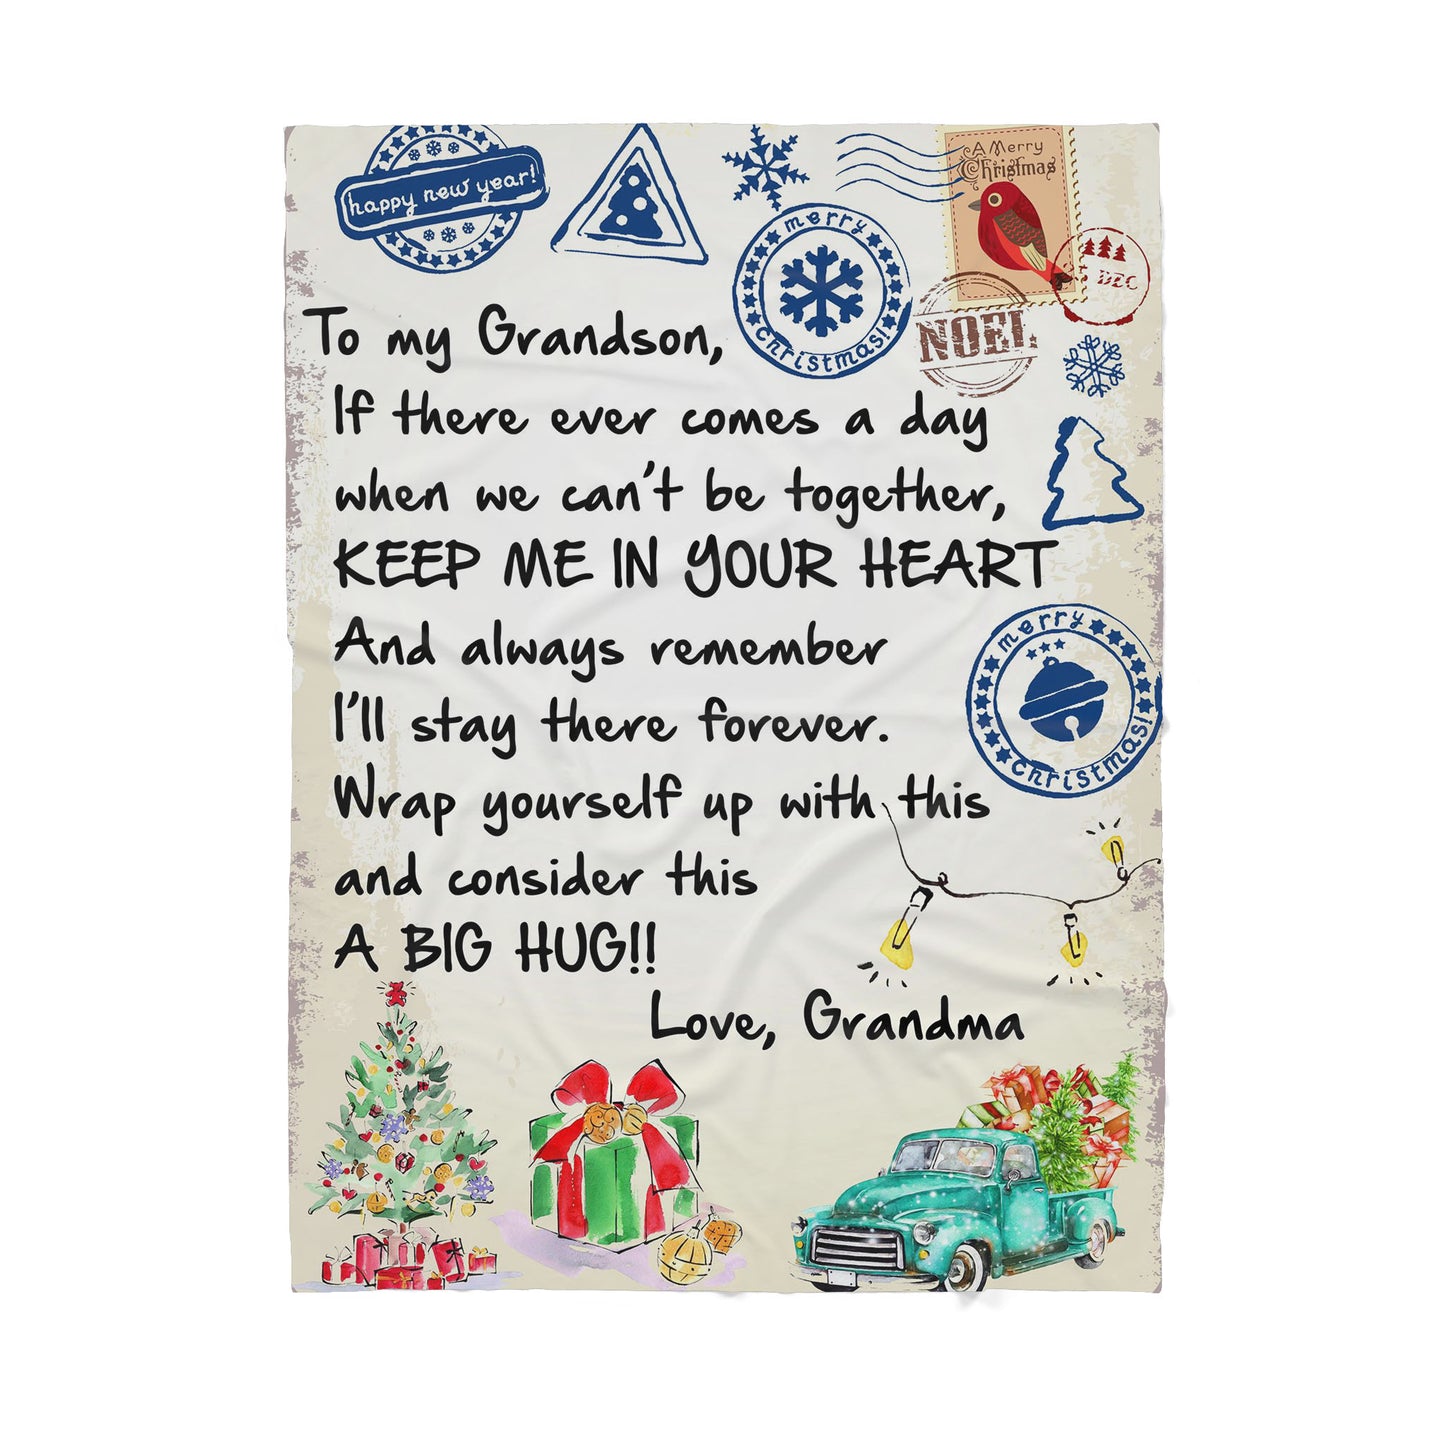 happy new year!
A Merry
Christmas
merry
christmas!
DEC
NOEL
To my Grandson,
If there ever comes a day
when we can't be together,
KEEP ME IN YOUR HEART
And always remember
I'll stay there forever.
merry
christmas!
Wrap yourself up with this
and consider this
A BIG HUG!!
Love, Grandma